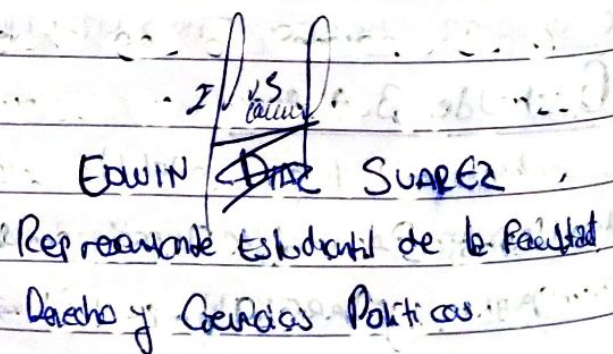 EDWIN DIAZ SUAREZ
Representante Estudiantil de la Facultad
Derecho y Ciencias Políticas.